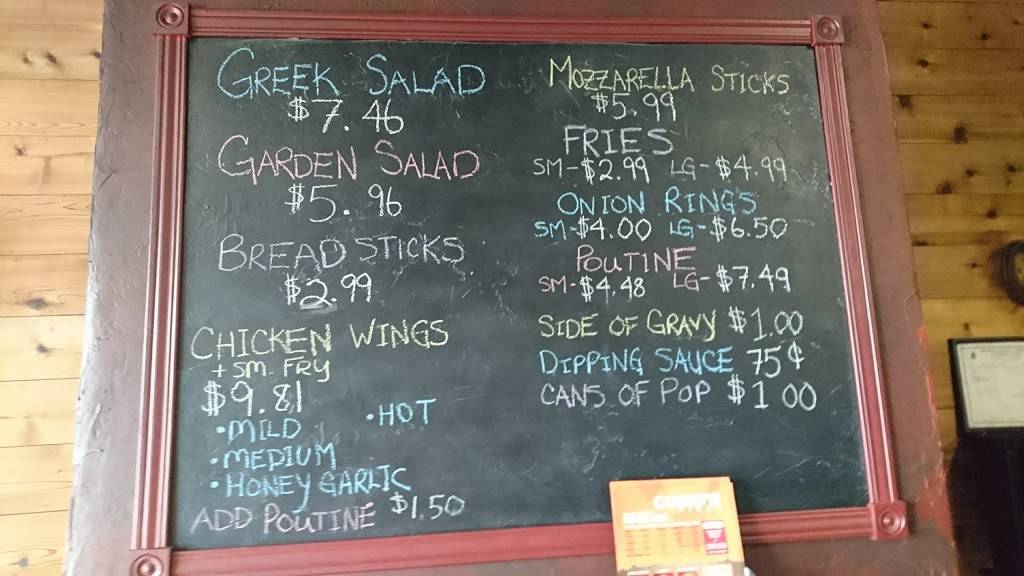 GREEK SALAD
$7.46
GARDEN SALAD
$5.96
BREAD STICKS
$2.99
CHICKEN WINGS
+ SM. FRY
$9.81
•HOT
•MILD
•MEDIUM
•HONEY GARLIC
ADD POUTINE $1.50
MOZZARELLA STICKS
$5.99
FRIES
SM-$2.99 LG-$4.99
ONION RING'S
SM-$4.00 LG-$6.50
POUTINE
SM-$4.48 LG-$7.49
SIDE OF GRAVY $1.00
DIPPING SAUCE 75¢
CANS OF POP $1 00